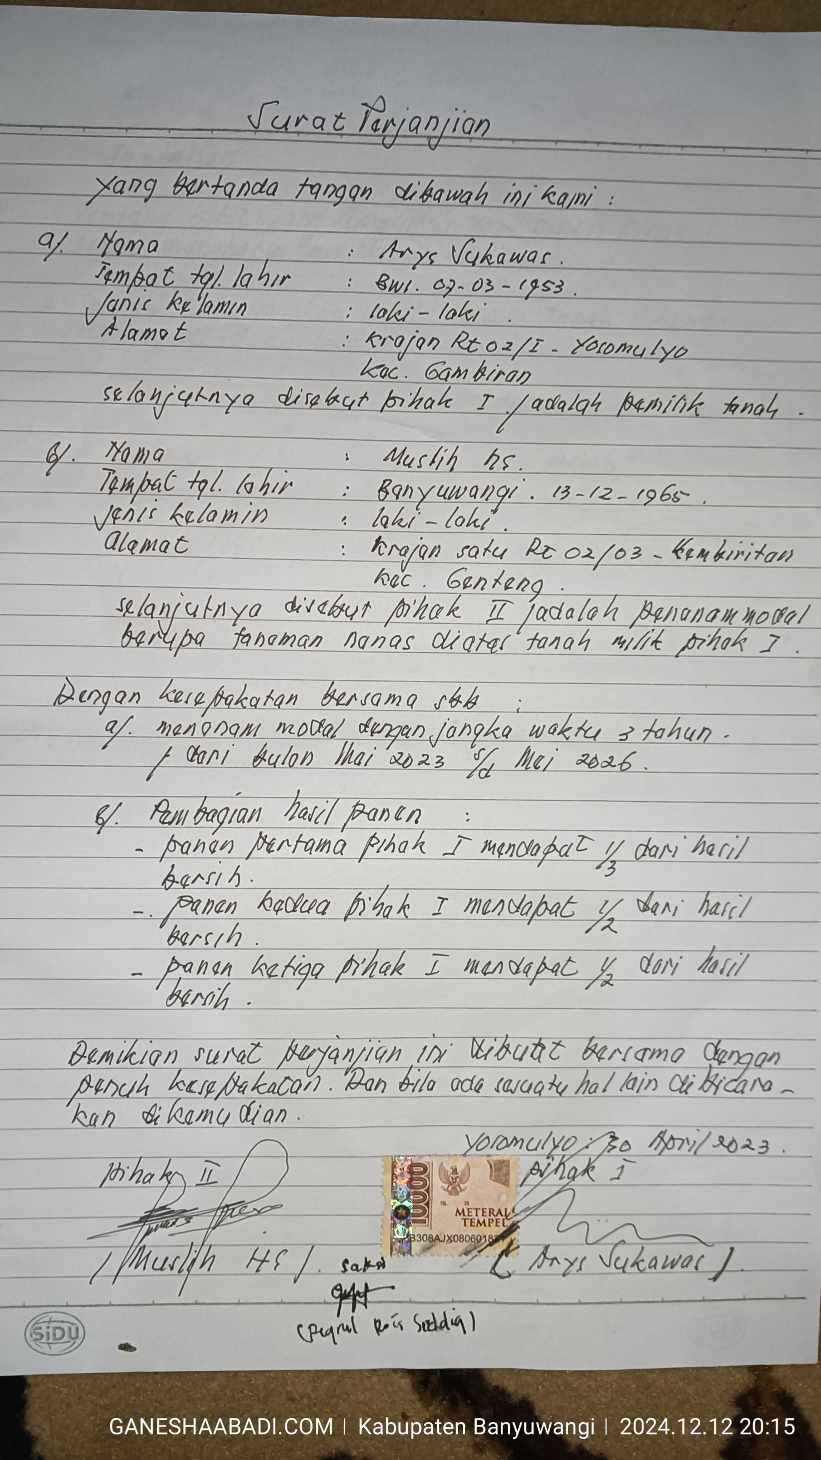 Surat Perjanjian
Yang bertanda tangan dibawah ini kami :
a/. Nama : Arys Sukawas.
Tempat tgl. lahir : BWI. 07-03-1953.
Jenis kelamin : laki-laki.
Alamat : Krajan Rt 02/I - Yosomulyo
Kec. Gambiran
selanjutnya disebut pihak I / adalah pemilik tanah.
b/. Nama : Muslih hs.
Tempat tgl. lahir : Banyuwangi. 13-12-1965.
Jenis kelamin : laki-laki.
alamat : Krajan satu Rt 02/03 - Kembiritan
kec. Genteng.
selanjutnya disebut pihak II / adalah penanam modal
berupa tanaman nanas diatas tanah milik pihak I.
Dengan kesepakatan bersama sbb :
a/. menanam modal dengan jangka waktu 3 tahun.
/ dari bulan Mai 2023 s/d Mei 2026.
b/. Pembagian hasil panen :
- panen pertama pihak I mendapat 1/3 dari hasil
bersih.
-. panen kedua pihak I mendapat 1/2 dari hasil
bersih.
- panen ketiga pihak I mendapat 1/2 dari hasil
bersih.
Demikian surat perjanjian ini dibuat bersama dengan
penuh kesepakatan. Dan bila ada sesuatu hal lain dibicara-
kan dikemudian.
Yosomulyo, 30 April 2023.
pihak II pihak I
10000
METERAI
TEMPEL
/ Muslih HS /. ( Arys Sukawas ).
saksi
SiDU
GANESHAABADI.COM | Kabupaten Banyuwangi | 2024.12.12 20:15